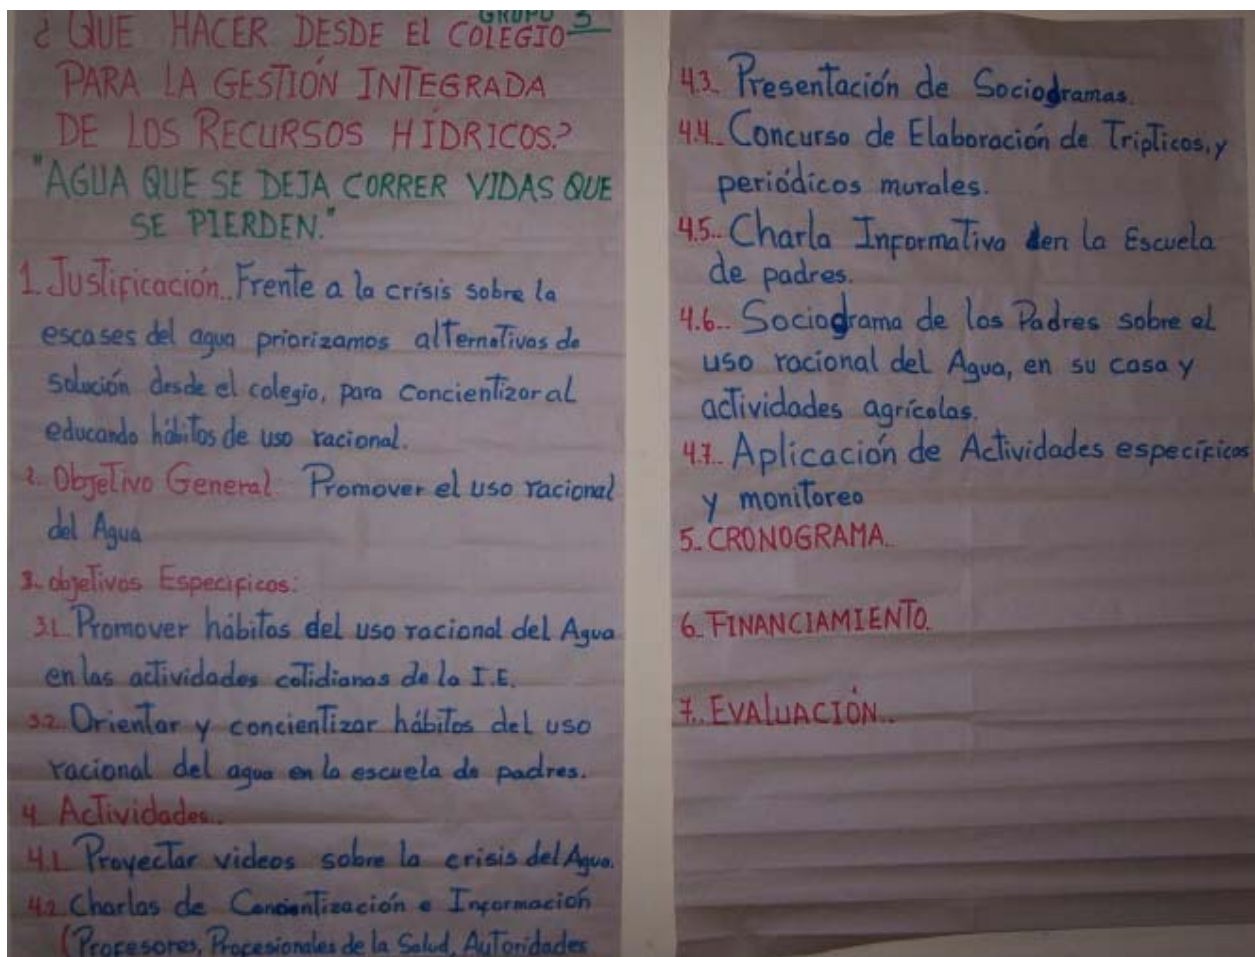 GRUPO 3
¿ QUE HACER DESDE El COlEGIO
PARA lA GESTIÓN INTEGRADA
DE LOS RECURSOS HÍDRICOS?
"AGUA QUE SE DEJA CORRER VIDAS QUE
SE PIERDEN."
1. Justificación.. Frente a la crisis sobre la
escases del agua priorizamos alternativas de
solución desde el colegio, para concientizar al
educando hábitos de uso racional.
2. Objetivo General Promover el uso racional
del Agua
3. objetivos Específicos:
3.1. Promover hábitos del uso racional del Agua
en las actividades cotidianas de la I.E.
3.2. Orientar y concientizar hábitos del uso
racional del agua en la escuela de padres.
4. Actividades..
4.1. Proyectar videos sobre la crisis del Agua.
4.2. Charlas de Concientización e Información
(Profesores, Profesionales de la Salud, Autoridades
4.3. Presentación de Sociodramas.
4.4.. Concurso de Elaboración de Tripticos, y
periódicos murales.
4.5.. Charla Informativa en la Escuela
de padres.
4.6.. Sociodrama de los Padres sobre el
uso racional del Agua, en su casa y
actividades agrícolas.
4.7.. Aplicación de Actividades específicas
y monitoreo
5.. CRONOGRAMA..
6. FINANCIAMIENTO.
7.. EVALUACIÓN..